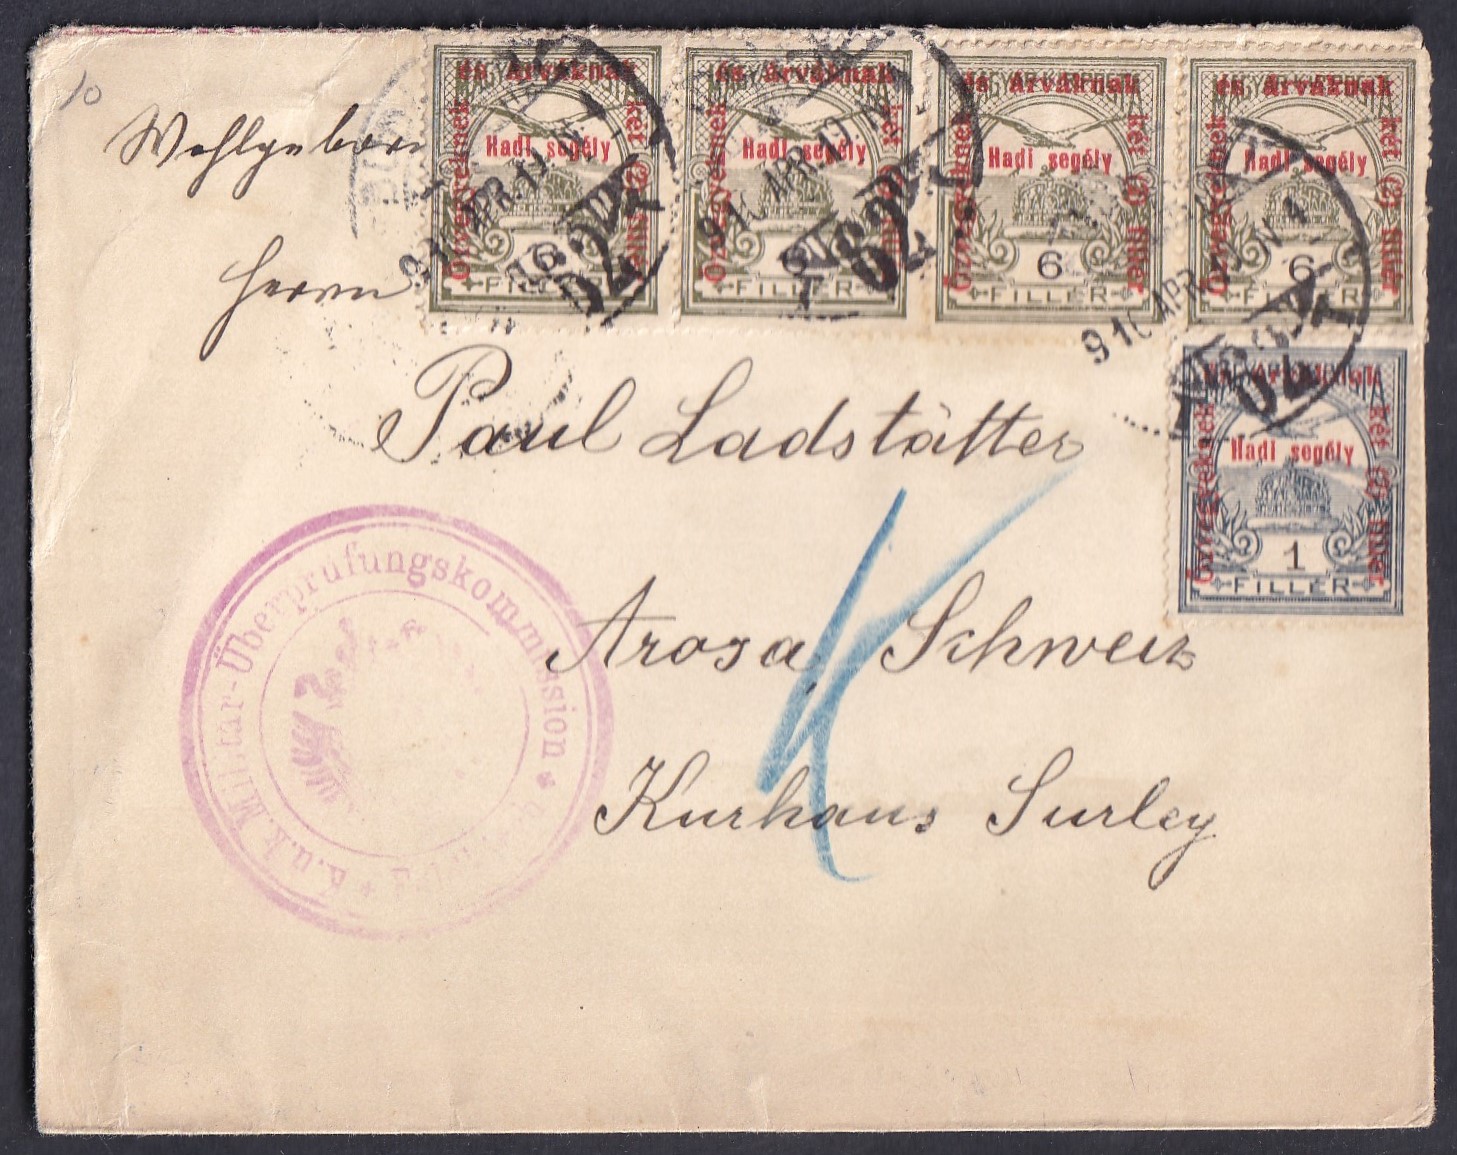 10
Wohlgeboren
Herrn
Paul Ladstätter
Arosa, Schweiz
Kurhaus Surley
K
Özvegyeknek és Árváknak két (2) fillér
Hadi segély
FILLÉR
Özvegyeknek és Árváknak két (2) fillér
Hadi segély
FILLÉR
Özvegyeknek és Árváknak két (2) fillér
Hadi segély
6
FILLÉR
Özvegyeknek és Árváknak két (2) fillér
Hadi segély
6
FILLÉR
Özvegyeknek és Árváknak két (2) fillér
Hadi segély
1
FILLÉR
916 APR. 62
916 APR. 62
916 APR.
K.u.k. Militär-Überprüfungskommission